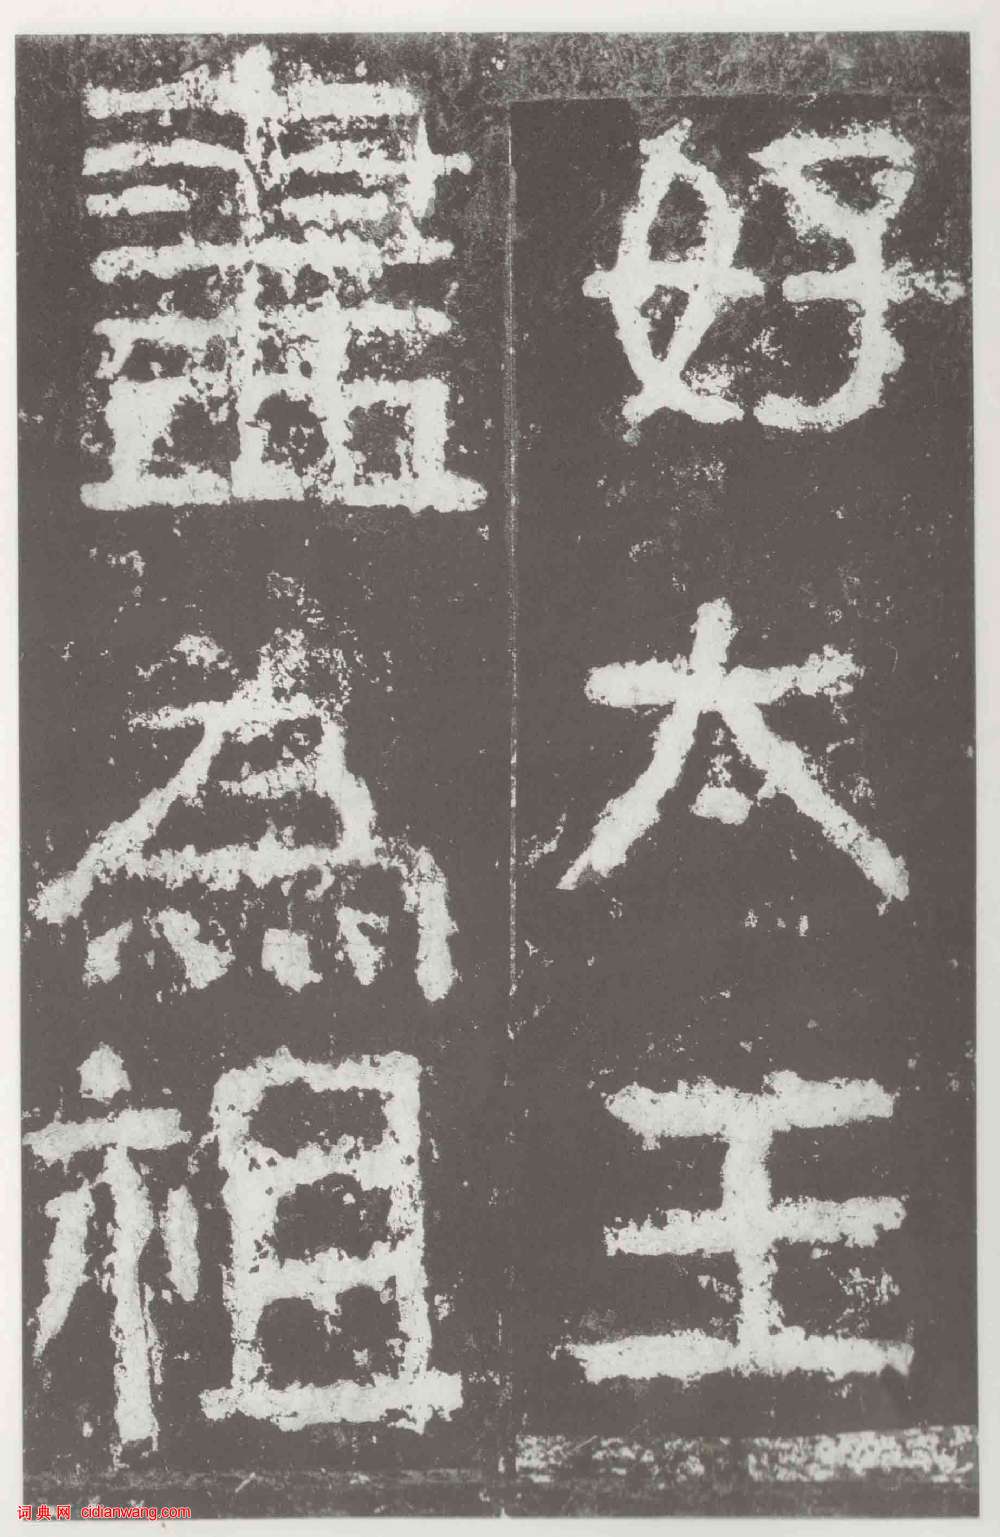 好太王
盡為祖
词典网 cidianwang.com